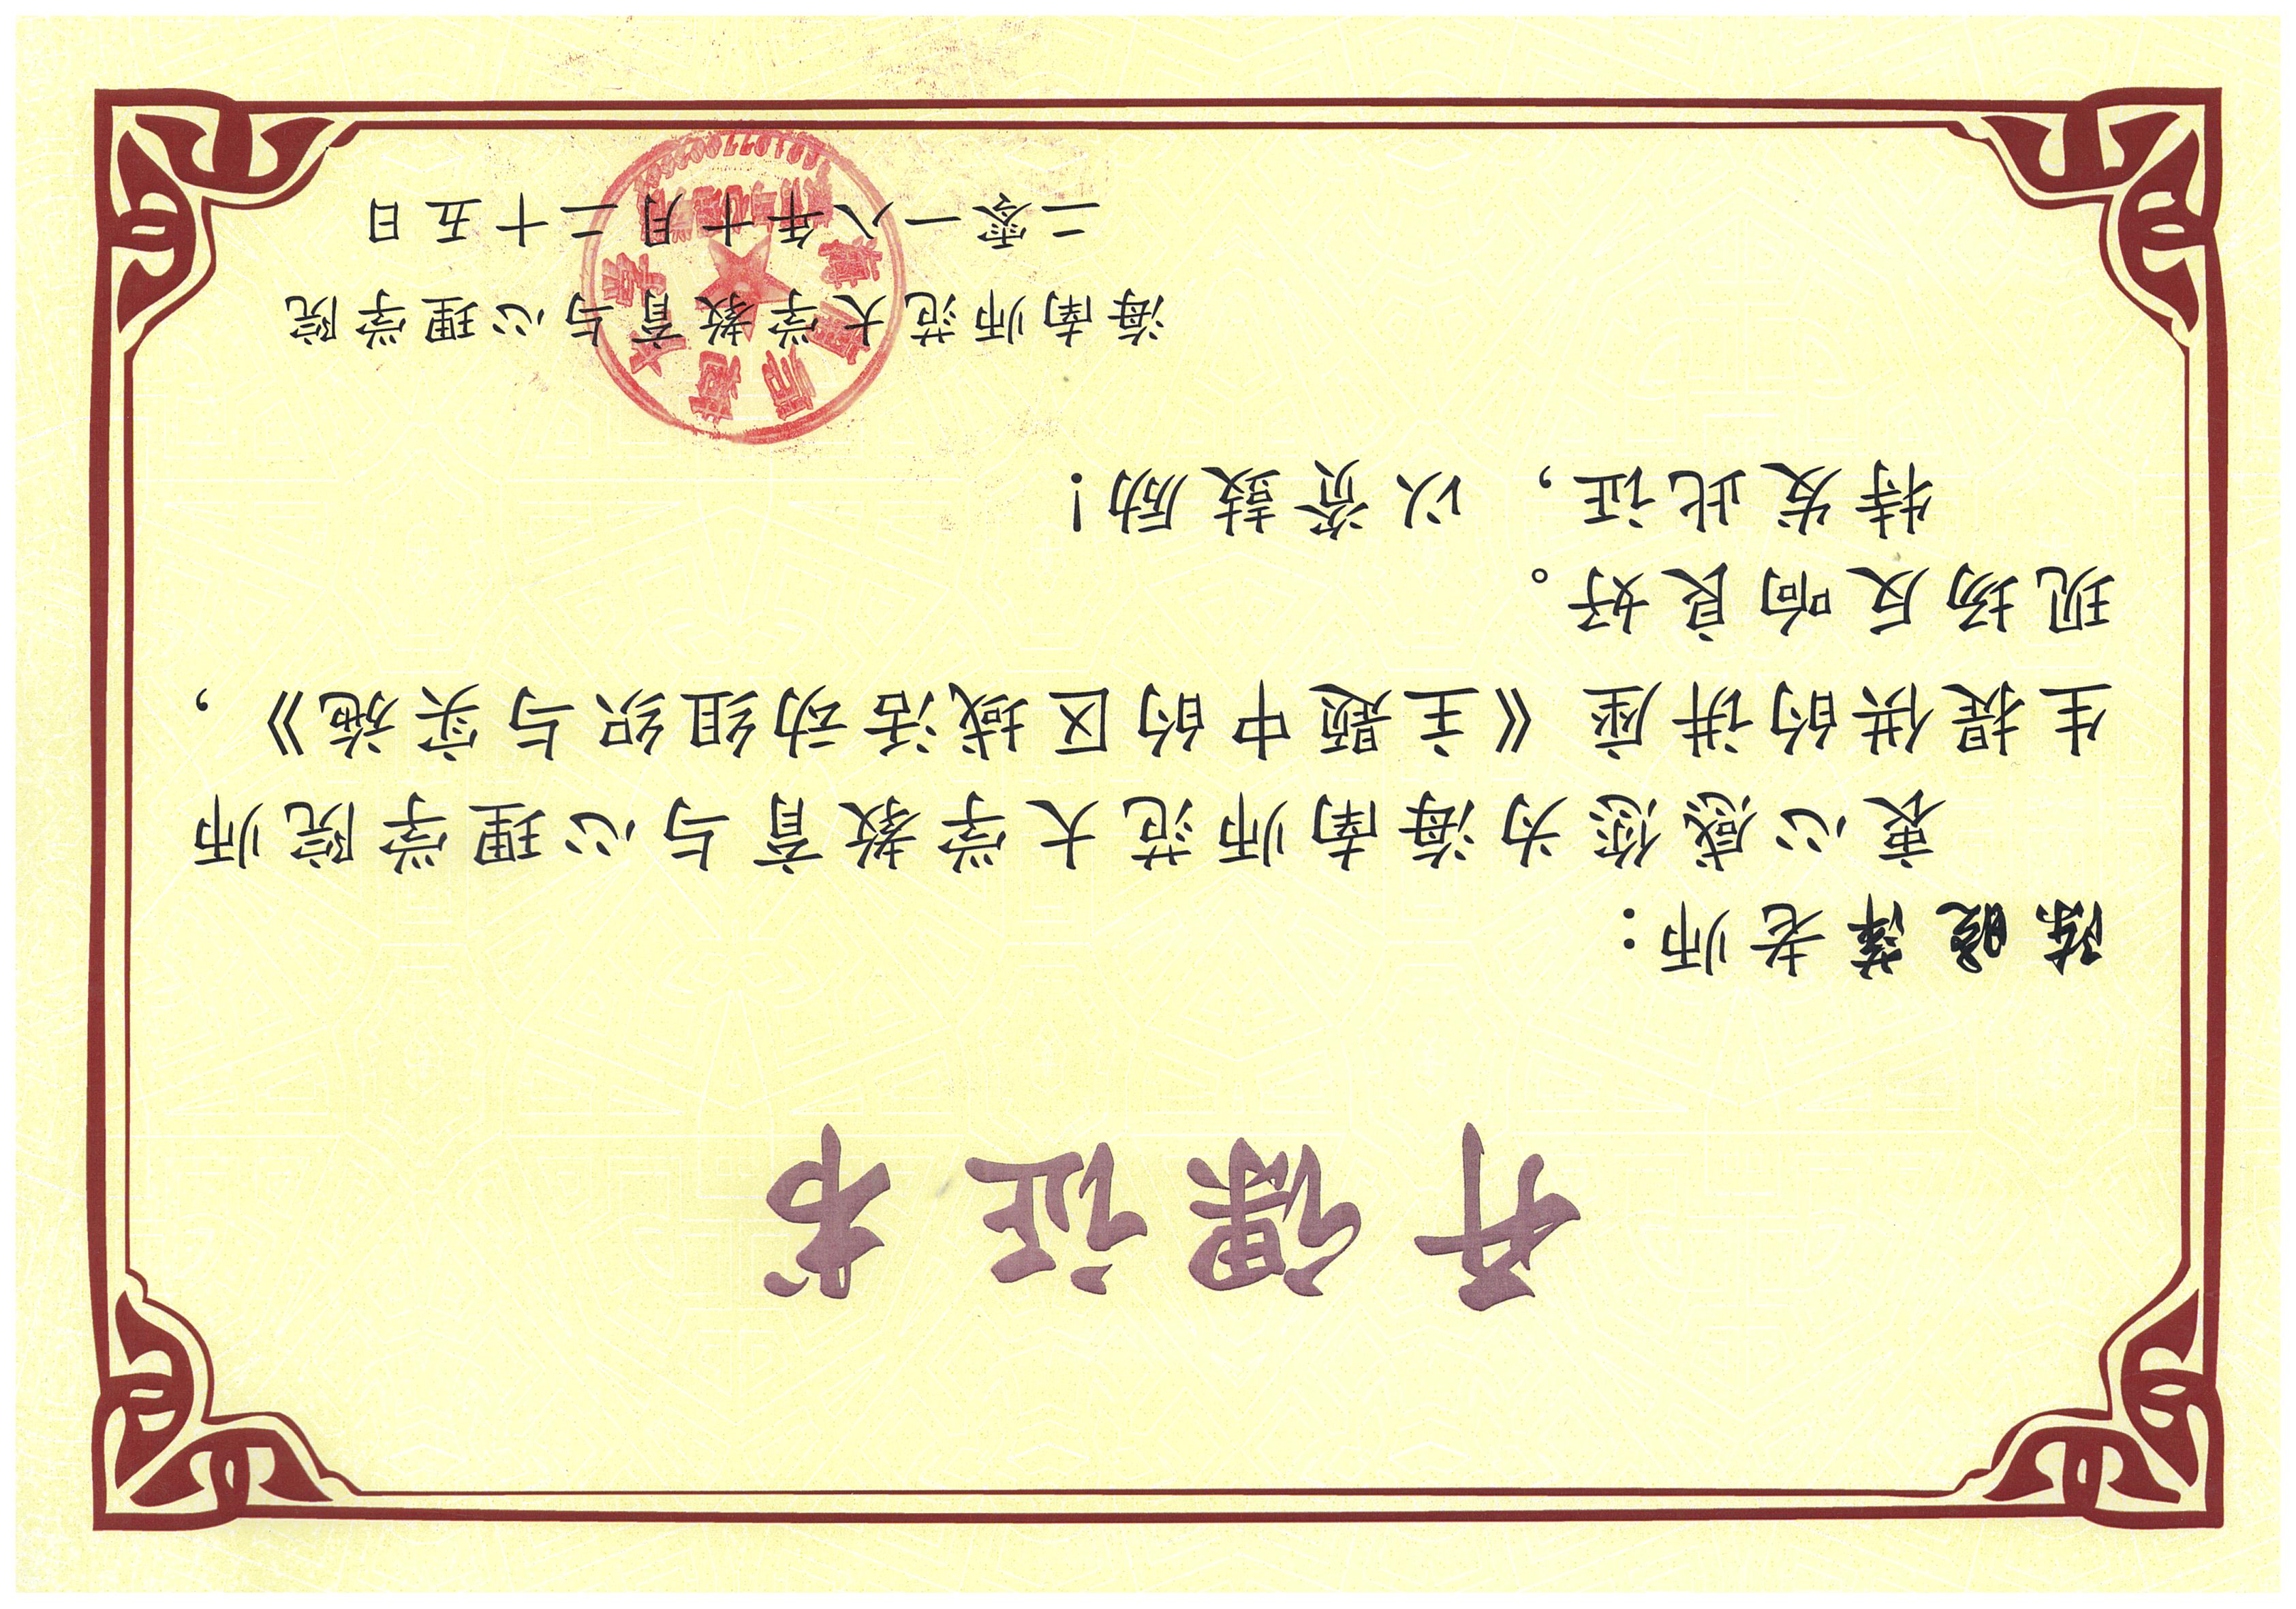 开课证书
陈晓萍老师：
衷心感您为海南师范大学教育与心理学院师
生提供的讲座《主题中的区域活动组织与实施》，
现场反响良好。
特发此证，以资鼓励！
海南师范大学教育与心理学院
二零一八年十月二十五日